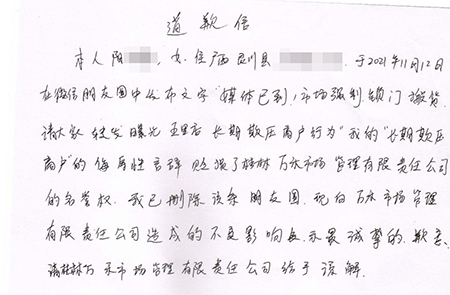 道歉信
本人阳，女，住广西灵川县，于2021年11月12日
在微信朋友圈中发布文字"媒体已到，市场强制锁门搬货，
请大家转发曝光五里店长期欺压商户行为"我的"长期欺压
商户"的侮辱性言辞贬损了桂林万禾市场管理有限责任公司
的名誉权。我已删除该条朋友圈，现向万禾市场管理
有限责任公司造成的不良影响表示最诚挚的歉意，
请桂林万禾市场管理有限责任公司给予谅解。